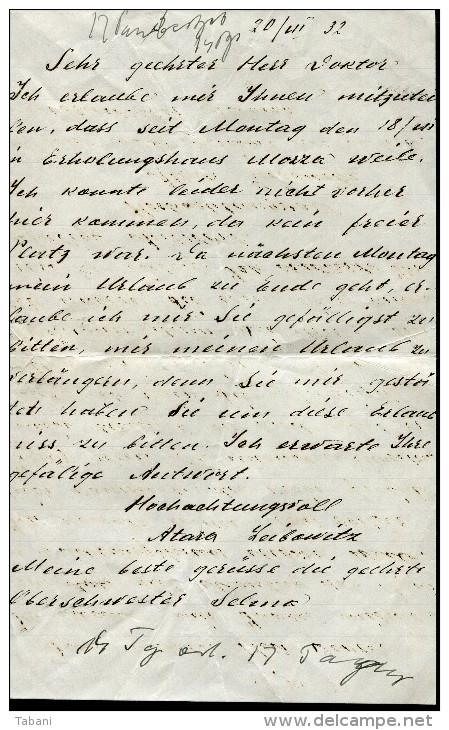 20/VII 32
Sehr geehrter Herr Doktor
Ich erlaube mir Ihnen mitzutei
len, dass seit Montag den 18/VII
in Erholungshaus Mozza weile.
Ich konnte leider nicht vorher
hier kommen, da kein freier
Platz war. Da nächsten Montag
mein Urlaub zu Ende geht, er-
laube ich mir Sie gefälligst zu
bitten, mir meinen Urlaub zu
verlängern, denn Sie mir
ich haben Sie um diese Erlaub
niss zu bitten. Ich erwarte Ihre
gefälige Antwort.
Hochachtungsvoll
Atara Leibowitz
Meine beste grüsse die geehrte
Oberschwester Selma
17
Tabani
www.delcampe.net